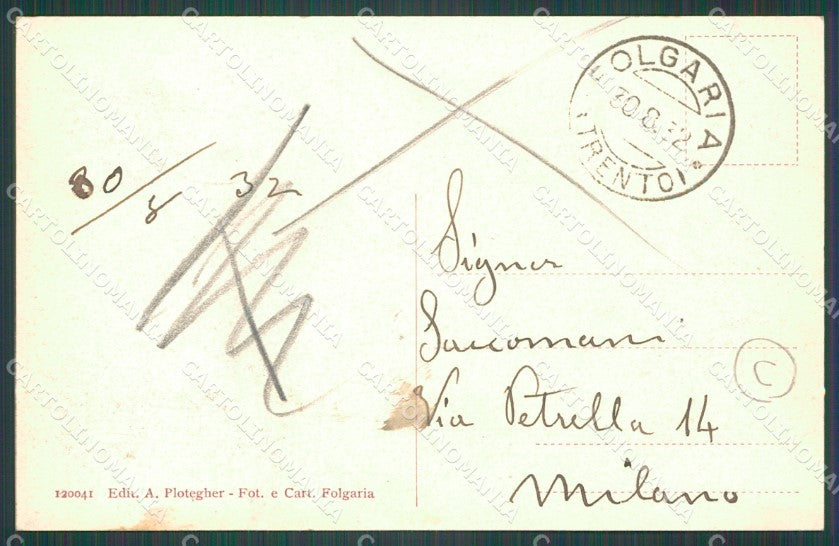 FOLGARIA
30.8.32
(TRENTO)
30/8 32
Signor
Saccomani
Via Petrella 14
Milano
C
120041 Edit. A. Plotegher - Fot. e Cart. Folgaria
CARTOLINOMANIA